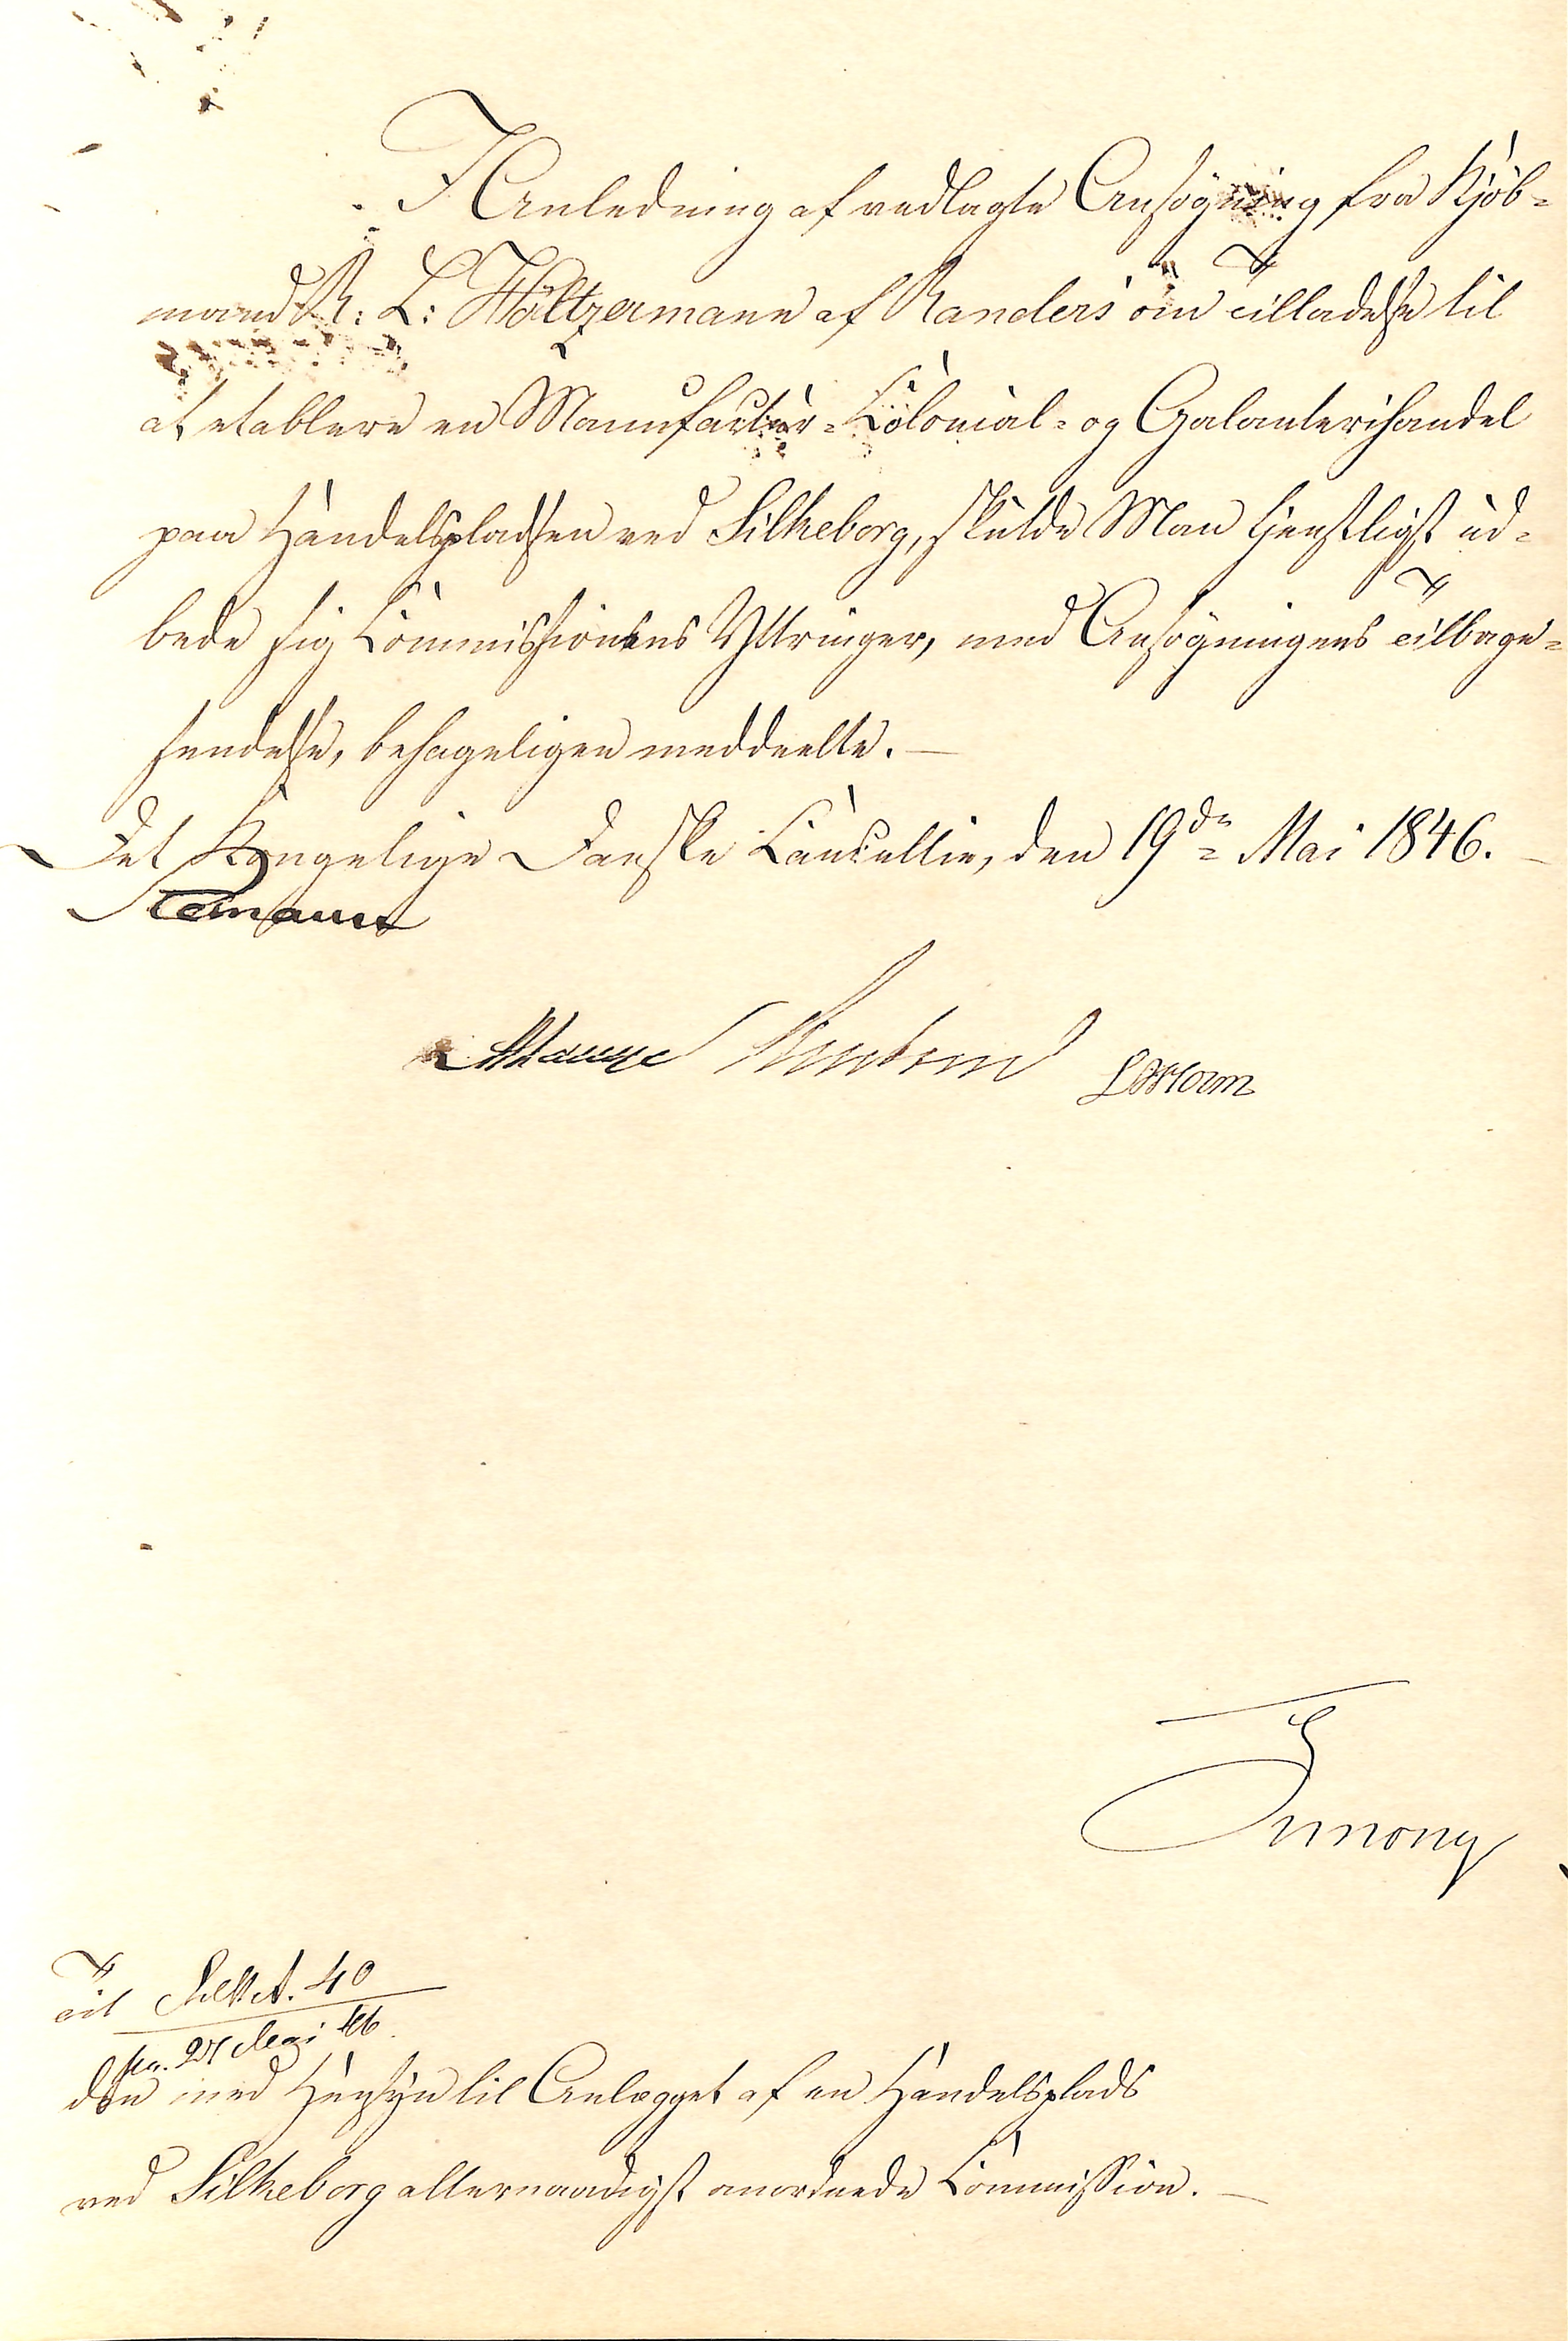 I Anledning af vedlagte Ansögning fra Kjöb-
mand R: L: Höltzermann af Randers om Tilladelse til
at etablere en Manufactur- Colonial- og Galanterihandel
paa Handelspladsen ved Silkeborg, skulde Man tjenstligst ud-
bede sig Commissionens Yttringer, med Ansögningens Tilbage-
sendelse, behageligen meddeelte. —
Det Kongelige Danske Cancellie, den 19de Mai 1846. —
Stemann
Lassen
Til
40
27 Mai 46
den med Hensyn til Anlægget af en Handelsplads
ved Silkeborg allernaadigst anordnede Commission. —